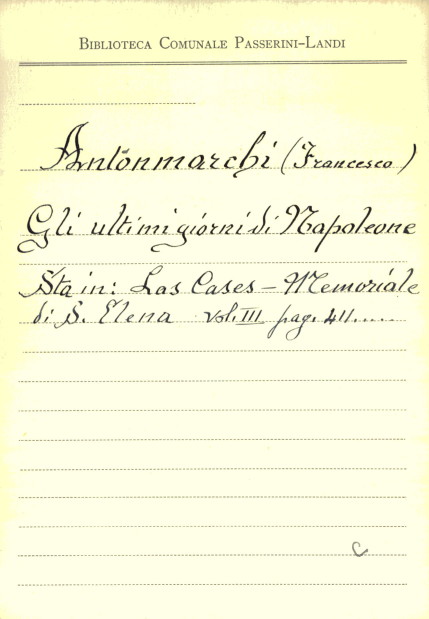 BIBLIOTECA COMUNALE PASSERINI-LANDI
Antonmarchi (Francesco)
Gli ultimi giorni di Napoleone
Sta in: Las Cases - Memoriale
di S. Elena vol. III pag. 411.....
C